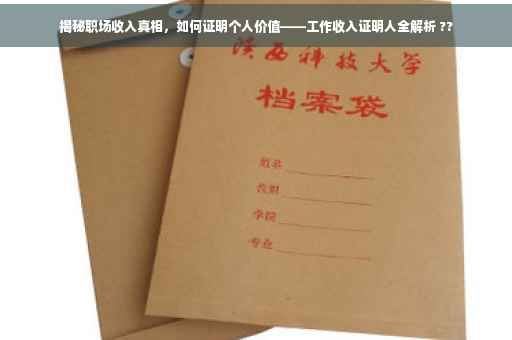 揭秘职场收入真相，如何证明个人价值——工作收入证明人全解析 ??
陕西科技大学
档案袋
姓名
性别
学院
专业